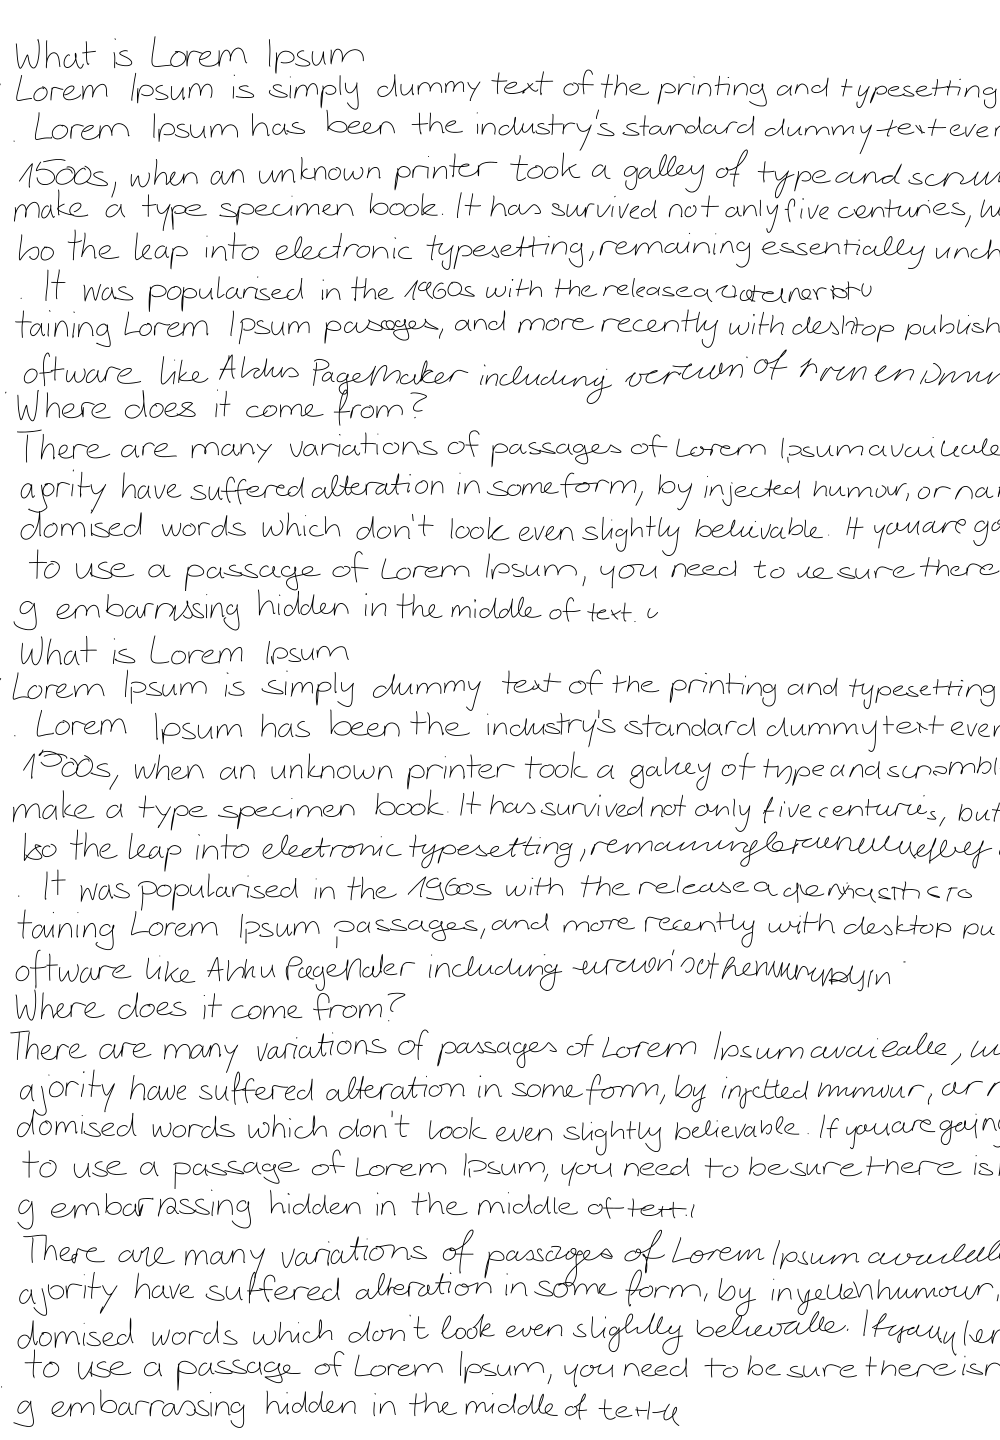 What is Lorem Ipsum
Lorem Ipsum is simply dummy text of the printing and typesetting
. Lorem Ipsum has been the industry's standard dummy text ever
1500s, when an unknown printer took a galley of type and
make a type specimen book. It has survived not only five centuries,
bo the leap into electronic typesetting, remaining essentially unch
. It was popularised in the 1960s with the release a
taining Lorem Ipsum passages, and more recently with desktop publish
oftware like Aldus PageMaker including version of
Where does it come from?
There are many variations of passages of Lorem Ipsum
aprity have suffered alteration in some form, by injected humour, or
domised words which don't look even slightly believable. If you are go
to use a passage of Lorem Ipsum, you need to sure there
g embarrassing hidden in the middle of text.
What is Lorem Ipsum
Lorem Ipsum is simply dummy text of the printing and typesetting
. Lorem Ipsum has been the industry's standard dummy text ever
when an unknown printer took a galley of type and scrambl
make a type specimen book. It has survived not only five centuries, but
bo the leap into electronic typesetting,
. It was popularised in the 1960s with the release a
taining Lorem Ipsum passages, and more recently with desktop pu
oftware like including
Where does it come from?
There are many variations of passages of Lorem Ipsum
ajority have suffered alteration in some form, by
domised words which don't look even slightly believable. If you are going
to use a passage of Lorem Ipsum, you need to be sure there
g embarrassing hidden in the middle of
There are many variations of passages of Lorem Ipsum
ajority have suffered alteration in some form, by humour,
domised words which don't look even slightly
to use a passage of Lorem Ipsum, you need to be sure there isn
g embarrassing hidden in the middle of